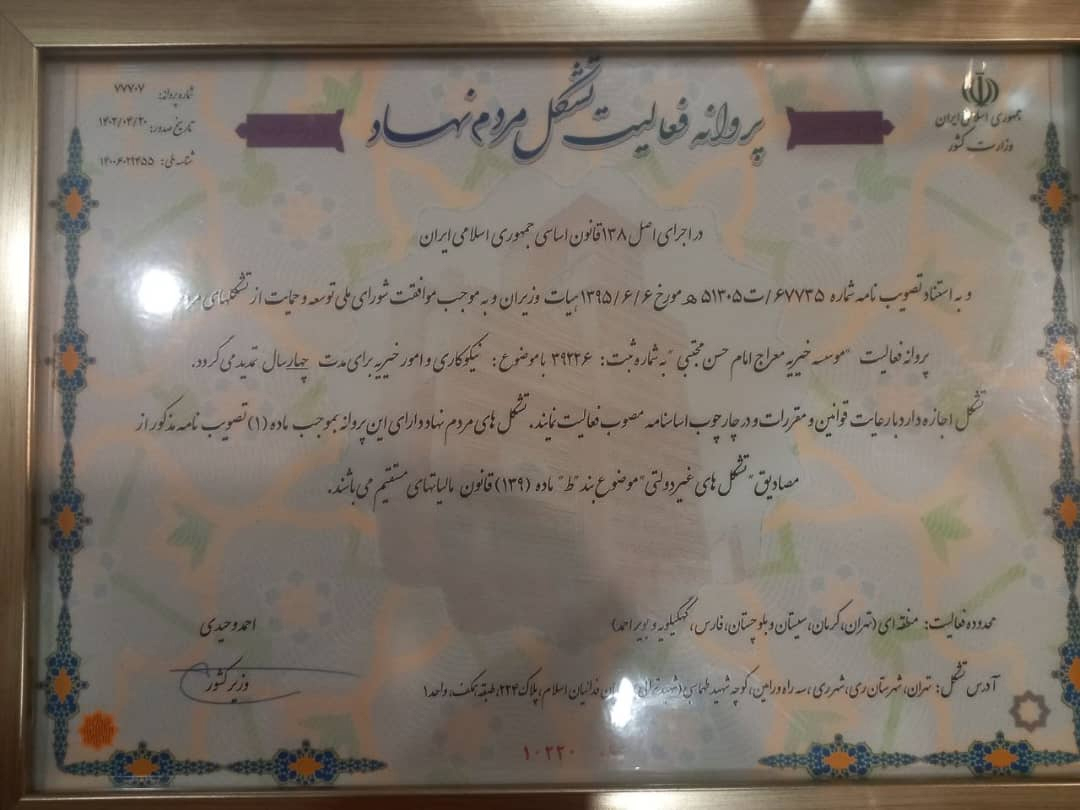 جمهوری اسلامی ایران
وزارت کشور
پروانه فعالیت تشکل مردم نهاد
شماره پروانه: ۷۷۷۰۷
تاریخ صدور: ۱۴۰۲/۰۴/۲۰
شناسه ملی: ۱۴۰۰۶۰۲۹۴۵۵
در اجرای اصل ۱۳۸ قانون اساسی جمهوری اسلامی ایران
و به استناد تصویب نامه شماره ۶۷۷۳۵/ت۵۱۳۰۵ ه مورخ ۱۳۹۵/۶/۶ هیات وزیران و به موجب موافقت شورای ملی توسعه و حمایت از تشکلهای
پروانه فعالیت "موسسه خیریه معراج امام حسن مجتبی" به شماره ثبت: ۳۹۲۲۶ با موضوع: نیکوکاری و امور خیریه برای مدت چهار سال تمدید می گردد.
تشکل اجازه دارد با رعایت قوانین و مقررات و در چارچوب اساسنامه مصوب فعالیت نمایند. تشکل های مردم نهاد دارای این پروانه بموجب ماده (۱) تصویب نامه مذکور از
مصادیق "تشکل های غیردولتی" موضوع بند "ط" ماده (۱۳۹) قانون مالیاتهای مستقیم می باشند.
محدوده فعالیت: منطقه ای (تهران، کرمان، سیستان و بلوچستان، فارس، کهگیلویه و بویراحمد)
احمد وحیدی
وزیر کشور
آدرس تشکل: تهران، شهرستان ری، شهرری، سه راه ورامین، کوچه شهید طهماسبی (شهید فدائیان اسلام، پلاک ۲۲۴، طبقه همکف، واحد ۱
۱۰۲۲۰